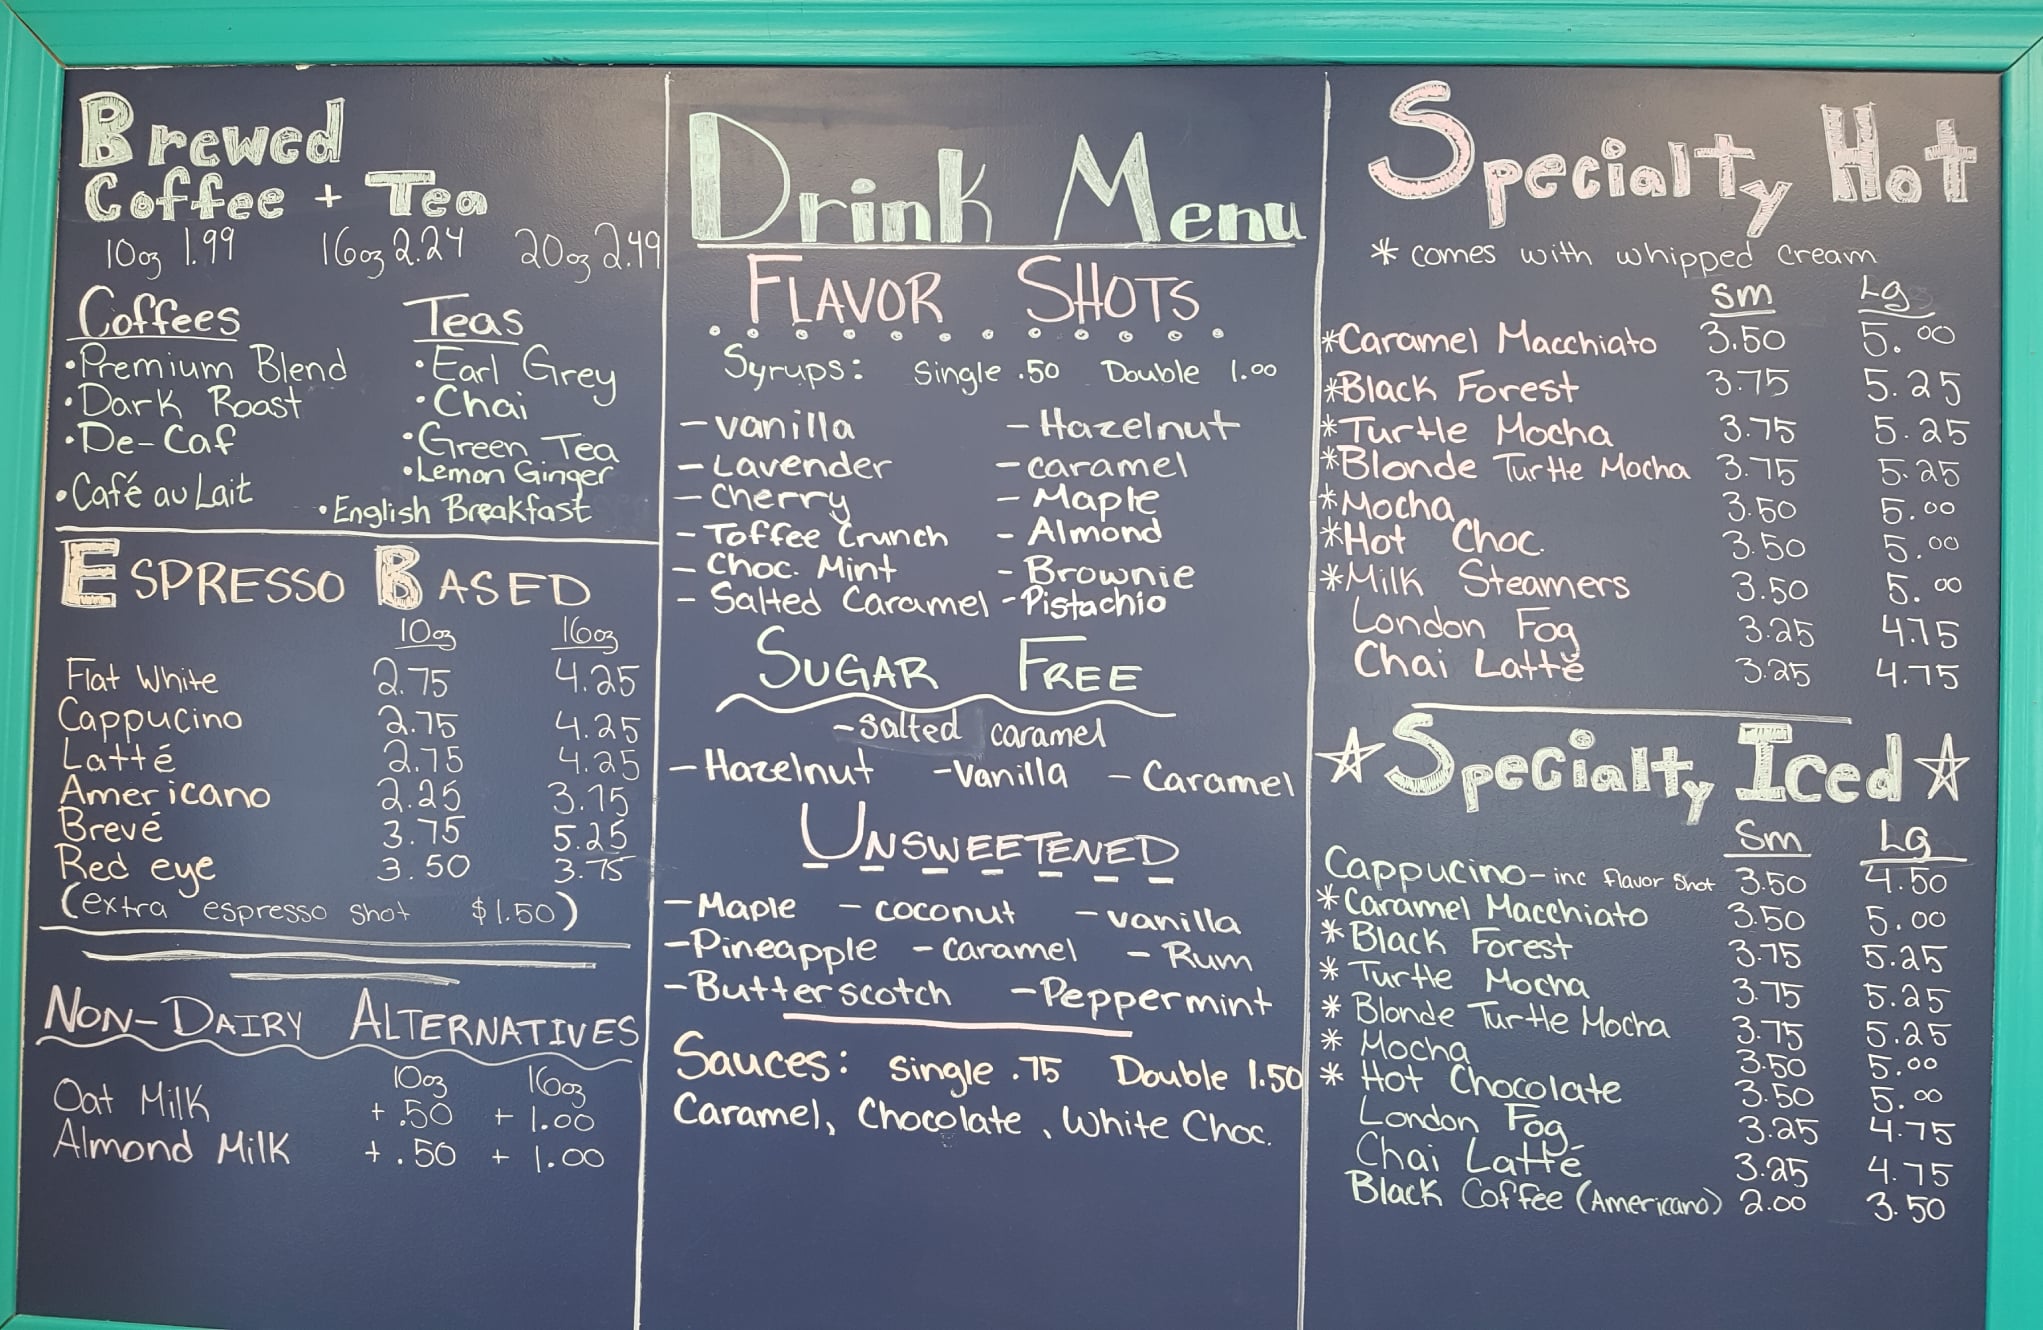 Brewed
Coffee + Tea
10oz 1.99 16oz 2.24 20oz 2.49
Coffees
• Premium Blend
• Dark Roast
• De-Caf
• Café au Lait
Teas
• Earl Grey
• Chai
• Green Tea
• Lemon Ginger
• English Breakfast
Espresso Based
10oz 16oz
Flat White 2.75 4.25
Cappucino 2.75 4.25
Latté 2.75 4.25
Americano 2.25 3.75
Brevé 3.75 5.25
Red eye 3.50 3.75
(extra espresso shot $1.50)
Non-Dairy Alternatives
10oz 16oz
Oat Milk + .50 + 1.00
Almond Milk + .50 + 1.00
Drink Menu
Flavor Shots
Syrups: Single .50 Double 1.00
- vanilla - Hazelnut
- Lavender - caramel
- Cherry - Maple
- Toffee Crunch - Almond
- Choc. Mint - Brownie
- Salted Caramel - Pistachio
Sugar Free
- Salted caramel
- Hazelnut - Vanilla - Caramel
Unsweetened
- Maple - coconut - vanilla
- Pineapple - Caramel - Rum
- Butterscotch - Peppermint
Sauces: Single .75 Double 1.50
Caramel, Chocolate, White Choc.
Specialty Hot
* comes with whipped cream
Sm Lg
*Caramel Macchiato 3.50 5.00
*Black Forest 3.75 5.25
*Turtle Mocha 3.75 5.25
*Blonde Turtle Mocha 3.75 5.25
*Mocha 3.50 5.00
*Hot Choc. 3.50 5.00
*Milk Steamers 3.50 5.00
London Fog 3.25 4.75
Chai Latté 3.25 4.75
☆ Specialty Iced ☆
Sm Lg
Cappucino - inc flavor shot 3.50 4.50
* Caramel Macchiato 3.50 5.00
* Black Forest 3.75 5.25
* Turtle Mocha 3.75 5.25
* Blonde Turtle Mocha 3.75 5.25
* Mocha 3.50 5.00
* Hot Chocolate 3.50 5.00
London Fog 3.25 4.75
Chai Latté 3.25 4.75
Black Coffee (Americano) 2.00 3.50